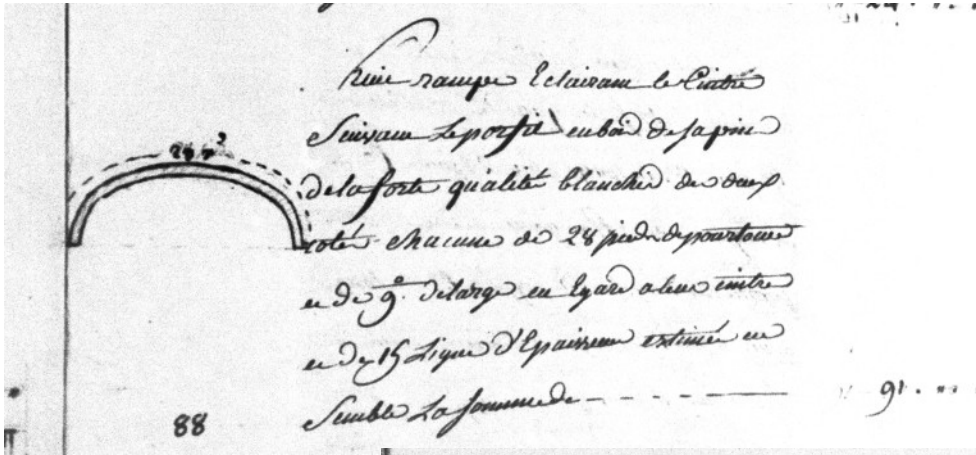 28 p
rampe Eclairant le Cintre
Suivant Le porfil en bois de sapin
de la forte qualité blanchie de deux
coté chacune de 28 pieds de pourtour
et de 9° de large eu Egard a leur cintre
et de 15 Ligne d'Epaisseur estimée en
semble La somme de - - - - 91 . "
88